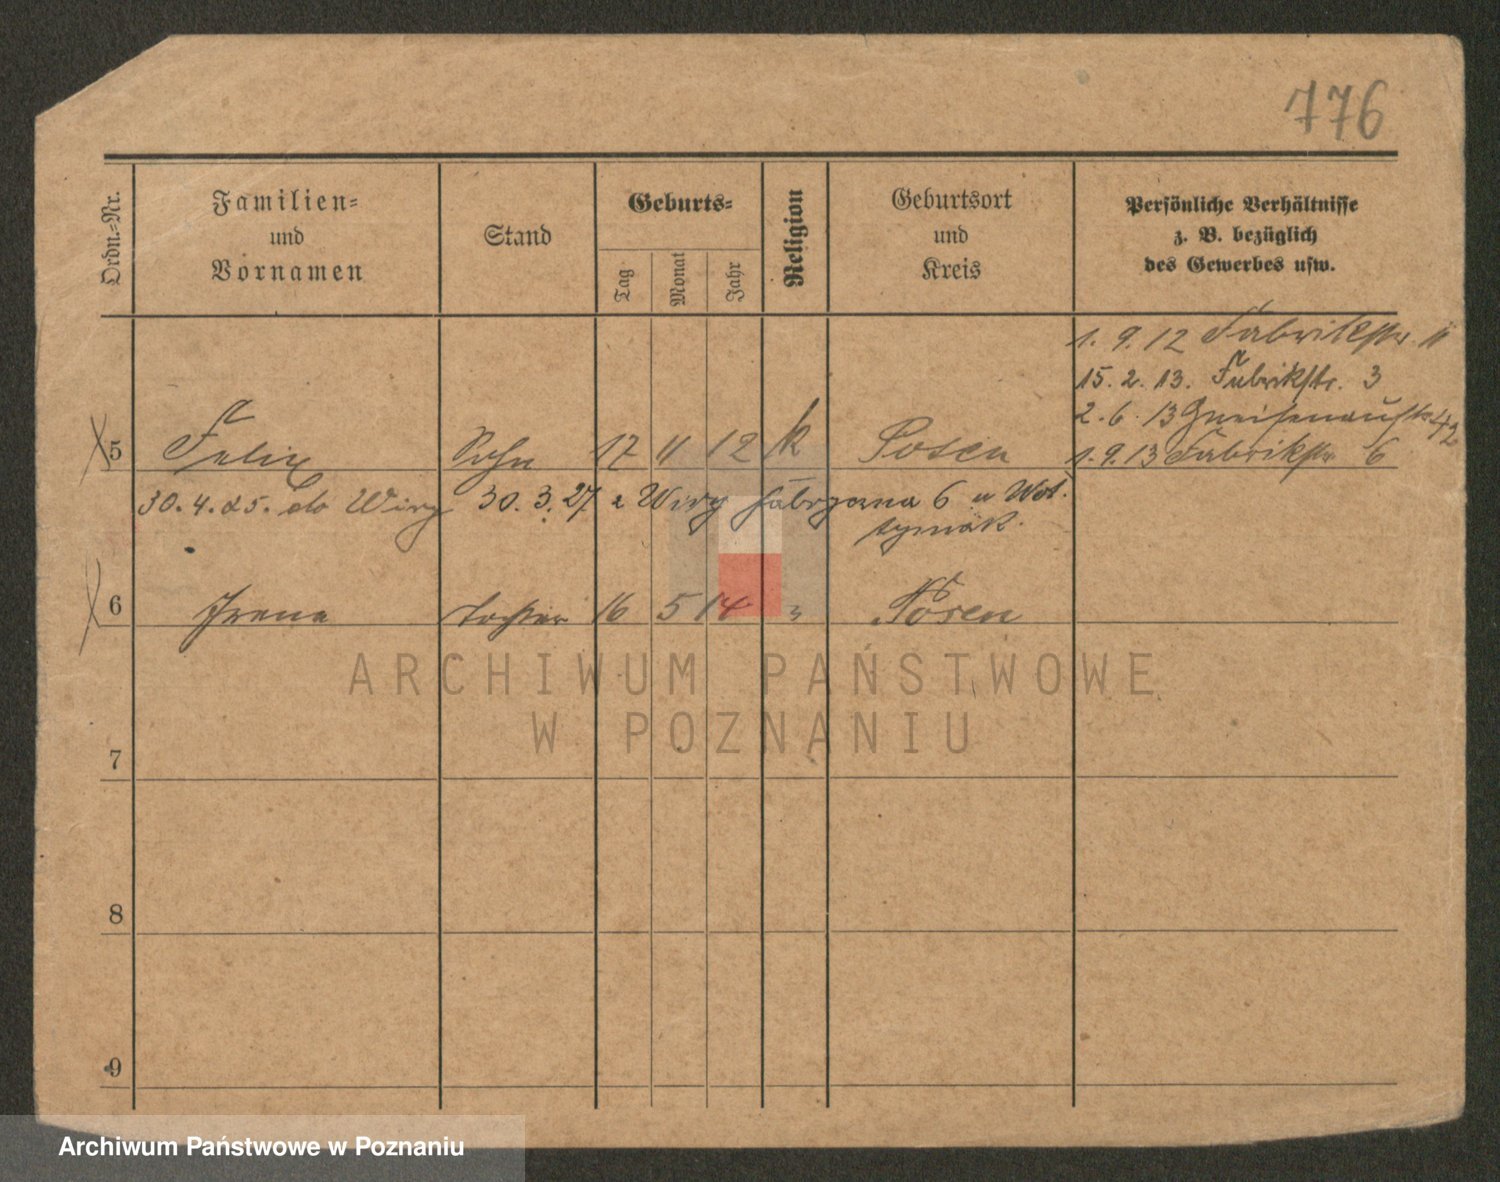 776
Ordn.-Nr.
Familien-
und
Vornamen
Stand
Geburts-
Tag
Monat
Jahr
Religion
Geburtsort
und
Kreis
Persönliche Verhältnisse
z. B. bezüglich
des Gewerbes usw.
1. 9. 12 Fabrikstr. 11
15. 2. 13. Fabrikstr. 3
2. 6. 13 Gneisenaustr. 42
5 Felix Sohn 17 11 12 k Posen 1. 9. 13 Fabrikstr. 6
30. 4. 25. do Wiry 30. 3. 27 z Wiry Fabryczna 6 u
6 Irena Tochter 16 5 14 " Posen
ARCHIWUM PAŃSTWOWE
W POZNANIU
7
8
9
Archiwum Państwowe w Poznaniu